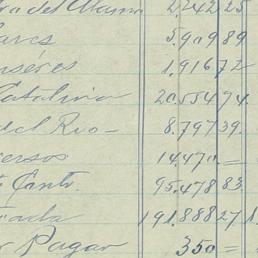 del Alamo 2,242 25
ares 5.909 89
nseres 1.916 72
Catalina 20.554 74
del Rio - 8.797 39.
ersos 14.470 =
Cantr. 95.478 83
191.888 27
r Pagar 350 =